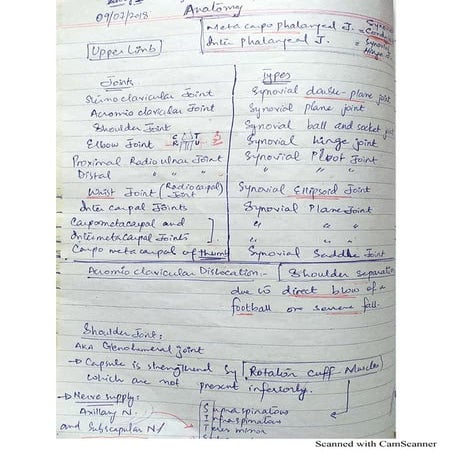 09/07/2018
Anatomy
Metacarpophalangeal J. = Syno
Condy
Inter phalangeal J. = Synovial
Hinge J.
Upper Limb
Joints Types
Sternoclavicular Joint Synovial double-plane joint
Acromio clavicular Joint Synovial plane joint
Shoulder Joint Synovial ball and socket joint
Elbow Joint Synovial hinge joint
Proximal Radio ulnar Joint Synovial Pivot Joint
Distal " " " "
Wrist Joint (Radiocarpal Joint) Synovial Ellipsoid Joint
Inter carpal Joints Synovial Plane Joint
Carpometacarpal and " "
Intermetacarpal Joints " "
Carpo metacarpal of thumb Synovial Saddle Joint
Acromio clavicular Dislocation:- Shoulder separation
due to direct blow of a
football or severe fall.
Shoulder Joint:
AKA Glenohumeral joint
- Capsule is strengthened by Rotator cuff Muscles
which are not present inferiorly.
→ Nerve supply:
Axillary N. Supraspinatous
and Subscapular N. Infraspinatous
Teres minor
Scanned with CamScanner